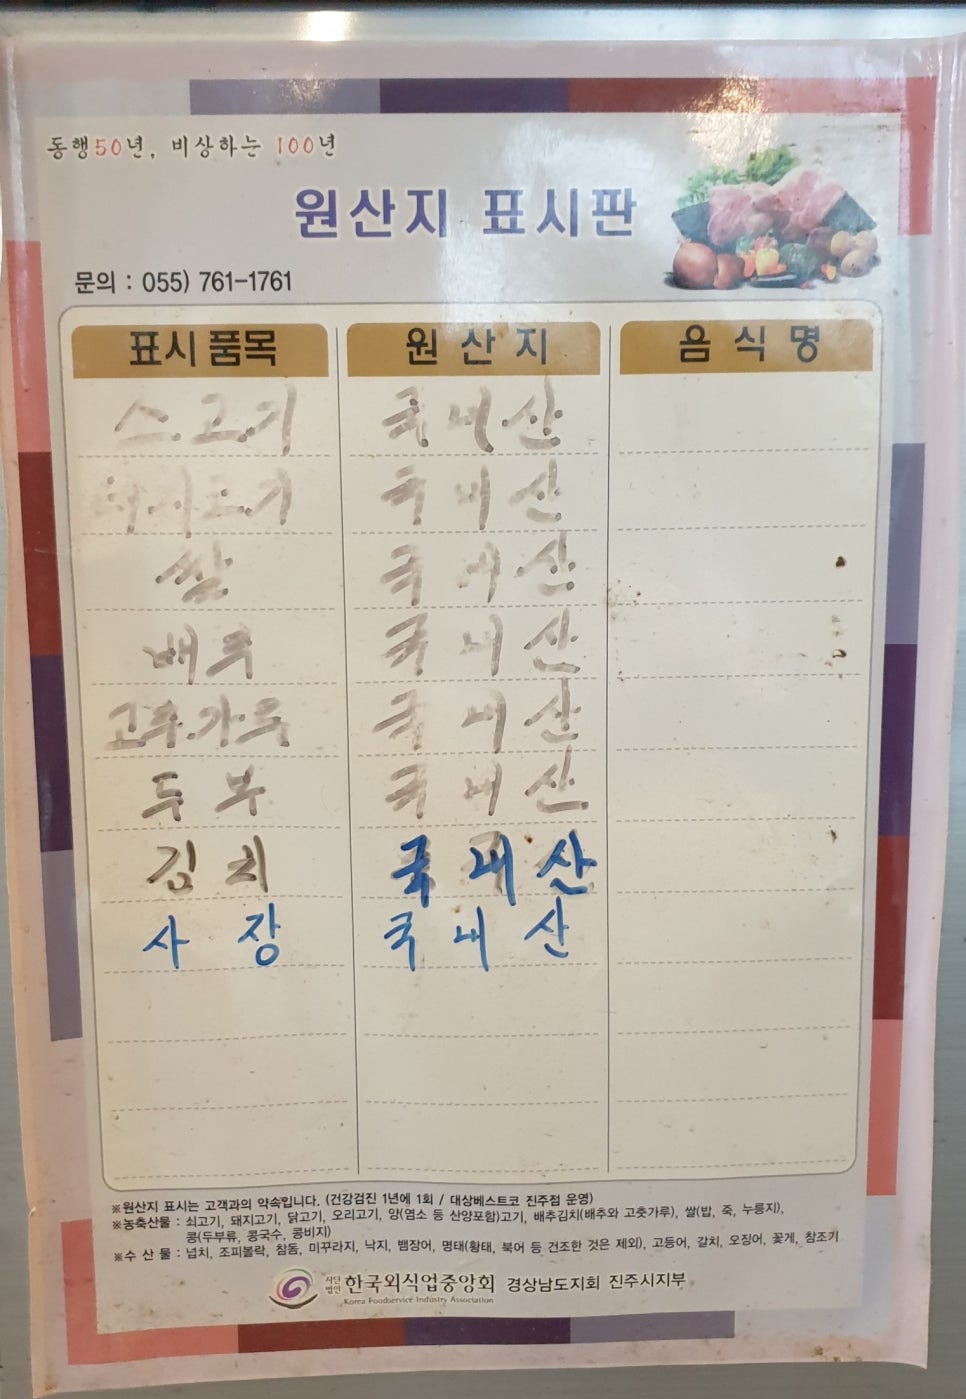 동행50년, 비상하는 100년
원산지 표시판
문의 : 055) 761-1761
표시품목 원산지 음식명
소고기 국내산
돼지고기 국내산
쌀 국내산
배추 국내산
고추가루 국내산
두부 국내산
김치 국내산
사장 국내산
※원산지 표시는 고객과의 약속입니다. (건강검진 1년에 1회 / 대상베스트코 진주점 운영)
※농축산물 : 쇠고기, 돼지고기, 닭고기, 오리고기, 양(염소 등 산양포함)고기, 배추김치(배추와 고춧가루), 쌀(밥, 죽, 누룽지),
콩(두부류, 콩국수, 콩비지)
※수 산 물 : 넙치, 조피볼락, 참돔, 미꾸라지, 낙지, 뱀장어, 명태(황태, 북어 등 건조한 것은 제외), 고등어, 갈치, 오징어, 꽃게, 참조기
사단법인 한국외식업중앙회 경상남도지회 진주시지부
Korea Foodservice Industry Association